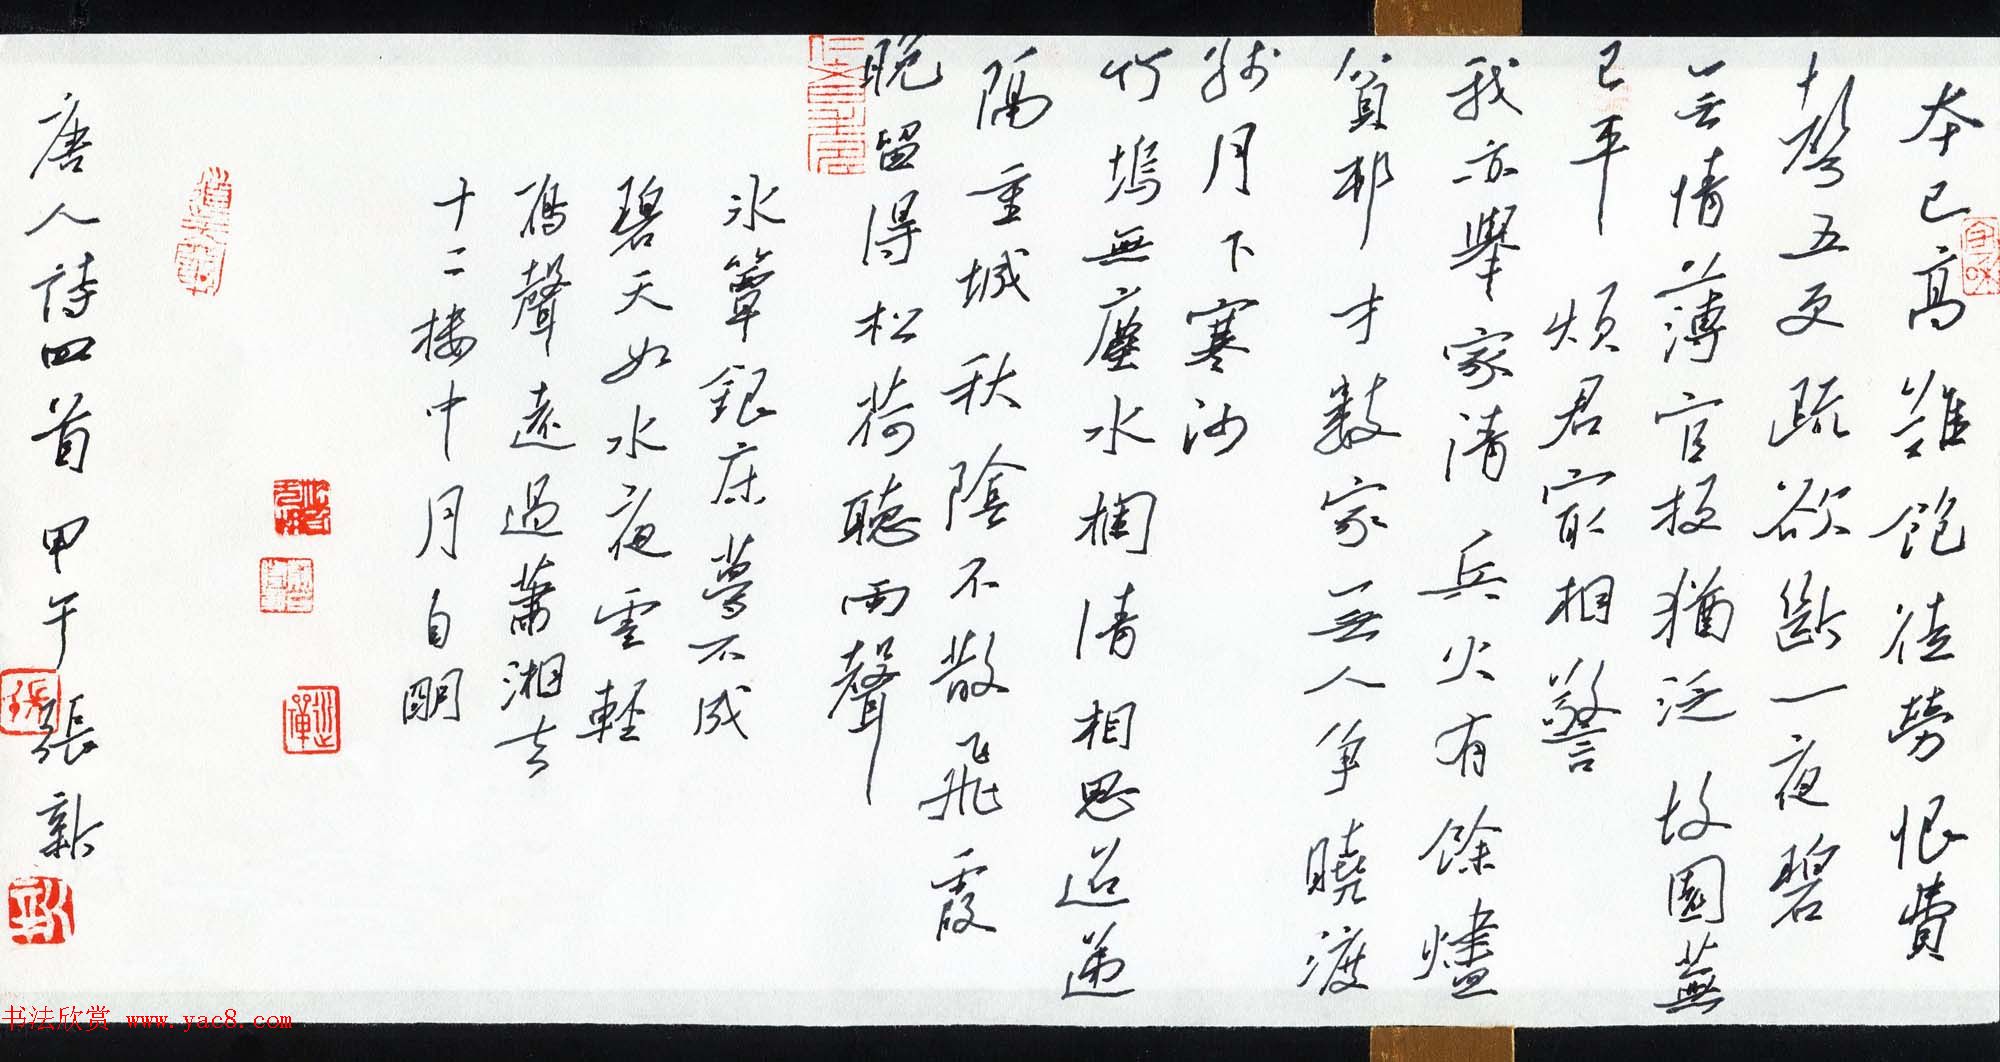 本已高難飽徒勞恨費
聲五更疏欲斷一夜碧
無情薄官梗猶泛 故園蕪
已平 煩君最相警
我亦舉家清 兵火有餘燼
貧村才數家無人爭曉渡
殘月下寒沙
竹塢無塵水檻清相思迢遞
隔重城秋陰不散飛霞
晚留得松荷聽雨聲
冰簟銀床夢不成
碧天如水夜雲輕
雁聲遠過蕭湘去
十二樓中月自明
唐人詩四首 甲午 張新
书法欣赏 www.yac8.com